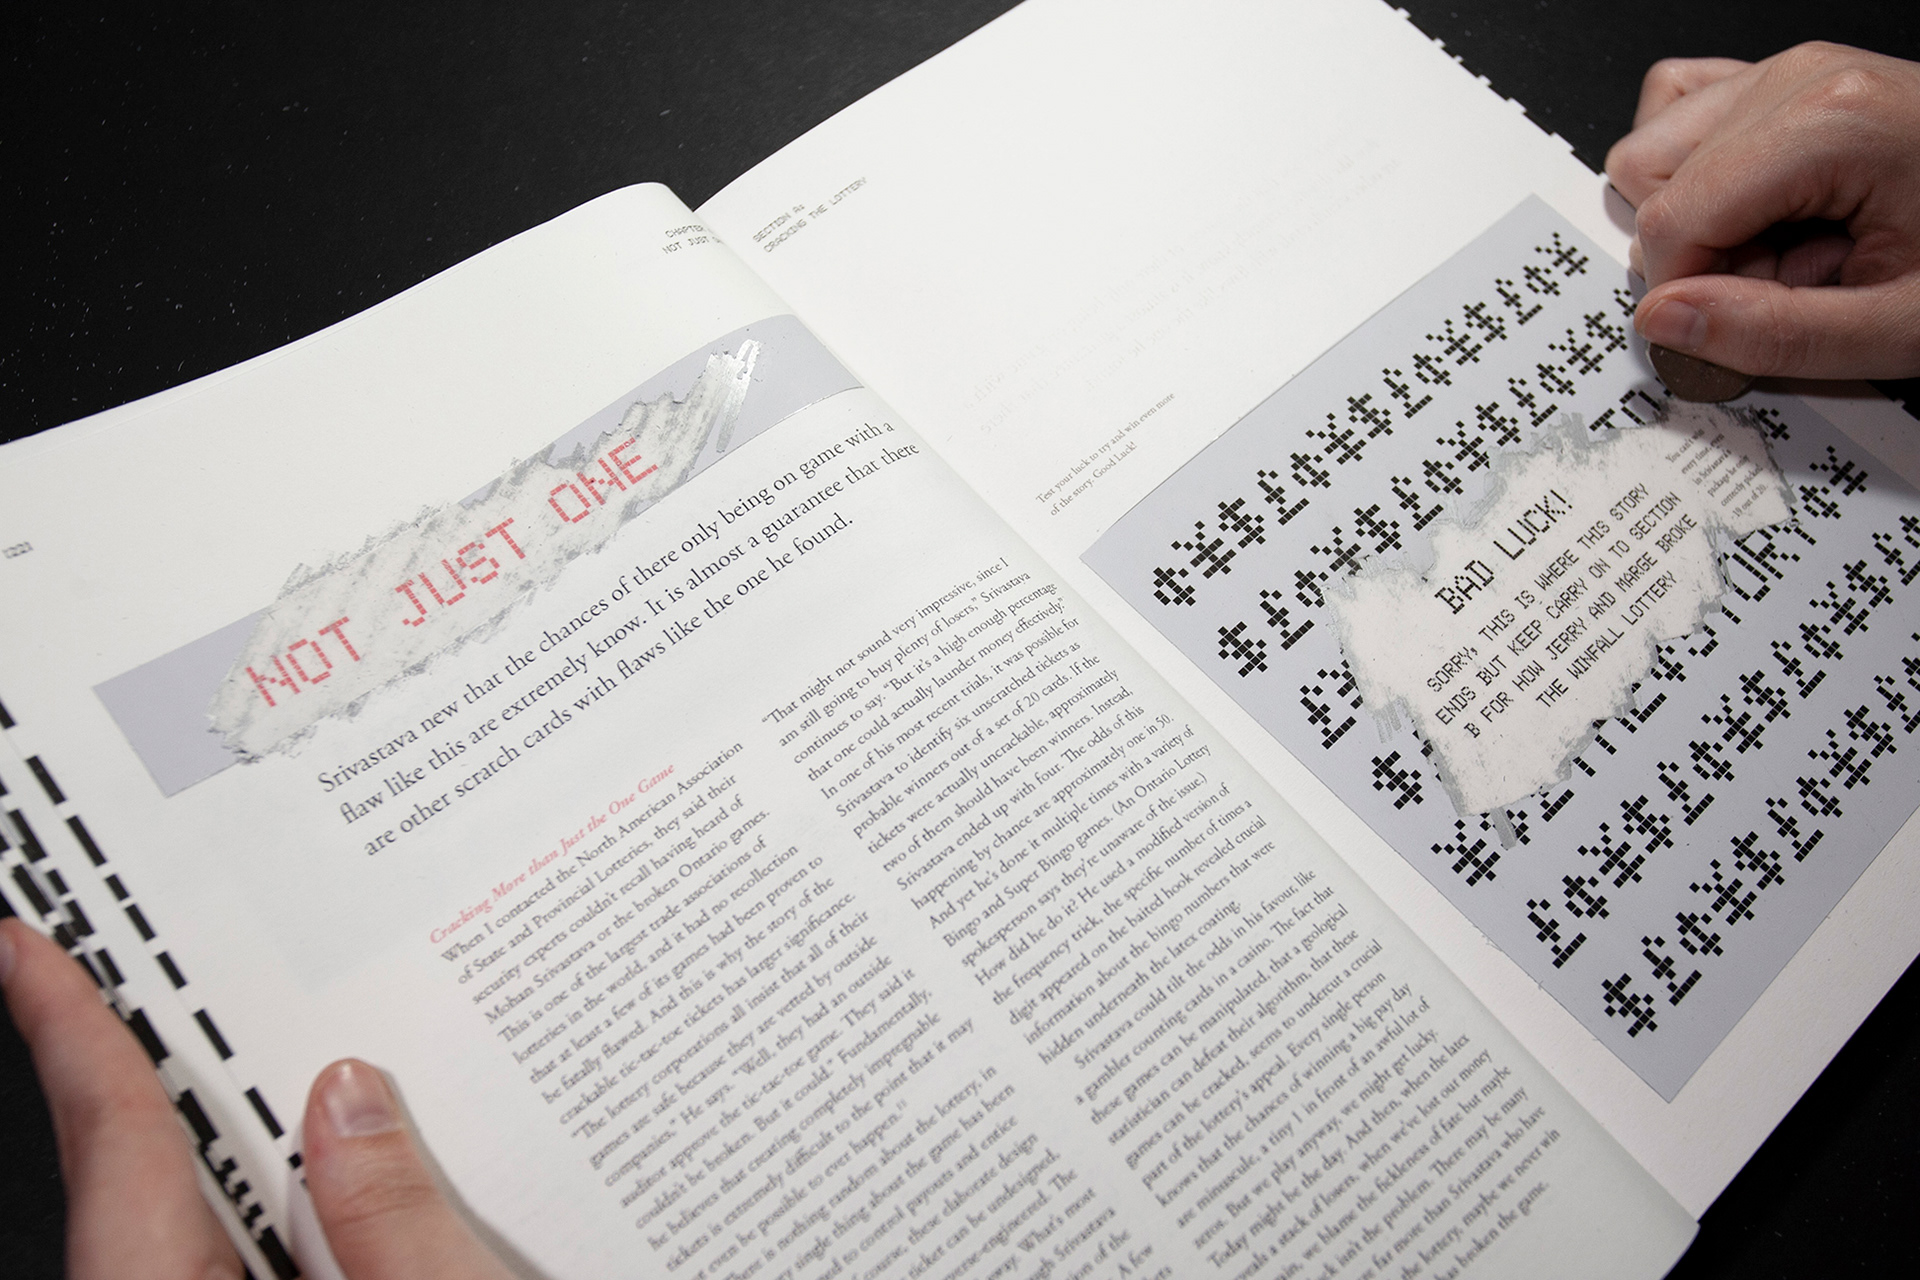 1221
NOT JUST
SECTION A:
CRACKING THE LOTTERY
NOT JUST ONE
Srivastava new that the chances of there only being on game with a
flaw like this are extremely know. It is almost a guarantee that there
are other scratch cards with flaws like the one he found.
Cracking More than Just the One Game
When I contacted the North American Association
of State and Provincial Lotteries, they said their
security experts couldn't recall having heard of
Mohan Srivastava or the broken Ontario games.
This is one of the largest trade associations of
lotteries in the world, and it had no recollection
that at least a few of its games had been proven to
be fatally flawed. And this is why the story of the
crackable tic-tac-toe tickets has larger significance.
"The lottery corporations all insist that all of their
games are safe because they are vetted by outside
companies." He says. "Well, they had an outside
auditor approve the tic-tac-toe game. They said it
couldn't be broken. But it could." Fundamentally,
he believes that creating completely impregnable
tickets is extremely difficult to the point that it may
even be possible to ever happen.
There is nothing random about the lottery, in
single thing about the game has been
to control payouts and entice
course, these elaborate design
ticket can be undesigned.
The
What's most
Srivastava
of the
A few
"That might not sound very impressive, since I
am still going to buy plenty of losers," Srivastava
continues to say. "But it's a high enough percentage
that one could actually launder money effectively."
In one of his most recent trials, it was possible for
Srivastava to identify six unscratched tickets as
probable winners out of a set of 20 cards. If the
tickets were actually uncrackable, approximately
two of them should have been winners. Instead,
Srivastava ended up with four. The odds of this
happening by chance are approximately one in 50.
And yet he's done it multiple times with a variety of
Bingo and Super Bingo games. (An Ontario Lottery
spokesperson says they're unaware of the issue.)
How did he do it? He used a modified version of
the frequency trick, the specific number of times a
digit appeared on the baited hook revealed crucial
information about the bingo numbers that were
hidden underneath the latex coating.
Srivastava could tilt the odds in his favour, like
a gambler counting cards in a casino. The fact that
these games can be manipulated, that a geological
statistician can defeat their algorithm, that these
games can be cracked, seems to undercut a crucial
part of the lottery's appeal. Every single person
knows that the chances of winning a big pay day
are minuscule, a tiny 1 in front of an awful lot of
zeros. But we play anyway, we might get lucky.
Today might be the day. And then, when the latex
reveals a stack of losers, when we've lost our money
we blame the fickleness of fate but maybe
isn't the problem. There may be many
far more than Srivastava who have
the lottery, maybe we never win
has broken the game.
Test your luck to try and win even more
of the story. Good Luck!
¢¥$£¢¥$£¢¥$£¢¥
BAD LUCK!
SORRY, THIS IS WHERE THIS STORY
ENDS BUT KEEP CARRY ON TO SECTION
B FOR HOW JERRY AND MARGE BROKE
THE WINFALL LOTTERY
You can't win
every time